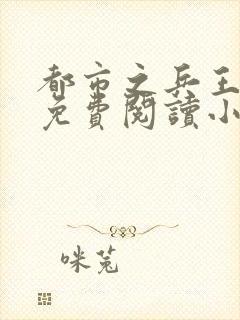 都市之兵王
免費閱讀小
咪兔